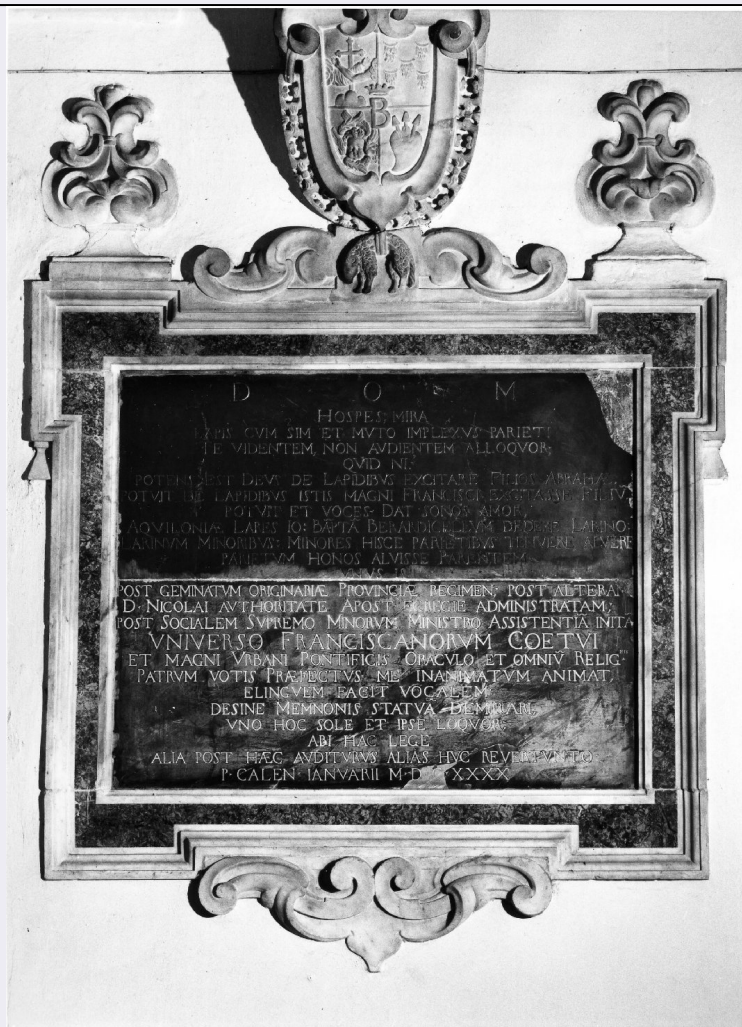 B
D O M
HOSPES, MIRA
LAPIS CUM SIM ET MVTO IMPLEXVS PARIETI
TE VIDENTEM, NON AVDIENTEM ALLOQVOR,
QVID NI.
POTENS EST DEVS DE LAPIDIBVS EXCITARE FILIOS ABRAHÆ
POTVIT DE LAPIDIBVS ISTIS MAGNI FRANCISCI
POTVIT ET VOCES. DAT SONOS AMOR.
AQVILONIÆ LAPIS IO: BAPTA DEDERE, LARINO
MINORIBVS: MINORES HISCE PARIETIBVS
HONOS
POST GEMINATVM ORIGINARIÆ PROVINCIÆ REGIMEN; POST ALTERAM
D. NICOLAI AVTHORITATE APOST. EGREGIE ADMINISTRATAM;
POST SOCIALEM SVPREMO MINORVM MINISTRO ASSISTENTIĀ INITĀ
VNIVERSO FRANCISCANORVM COETVI
ET MAGNI VRBANI PONTIFICIS ORACVLO, ET OMNIV̄ RELIG.
PATRVM VOTIS PRÆFECTVS, ME INANIMATVM ANIMAT,
ELINGVEM FACIT VOCALEM
DESINE MEMNONIS STATVA DEMIRARI
VNO HOC SOLE ET IPSE LOQVOR;
ABI HAC LEGE
ALIA POST HÆC AVDITVRVS ALIAS HVC
P. CALEN. IANVARII M.D XXXX